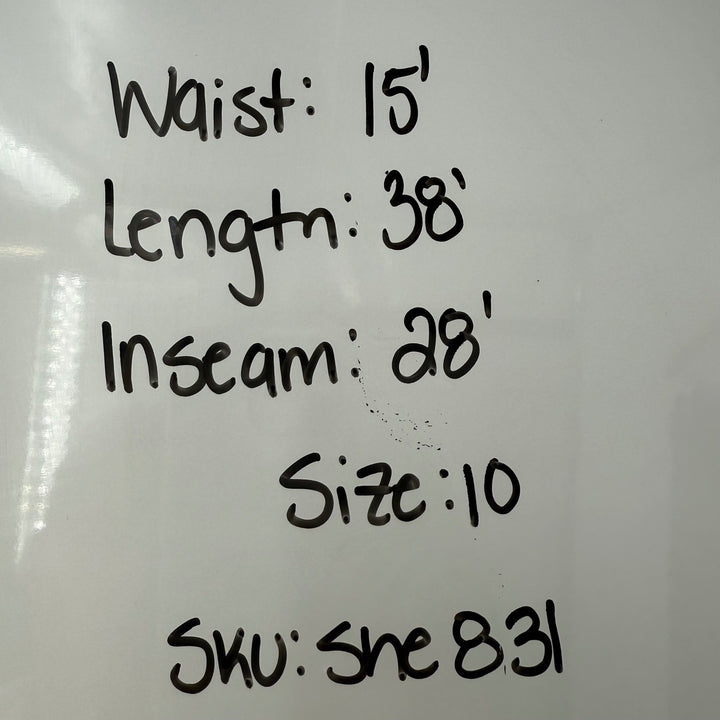 Waist: 15'
Length: 38'
Inseam: 28'
Size: 10
SKU: She 831